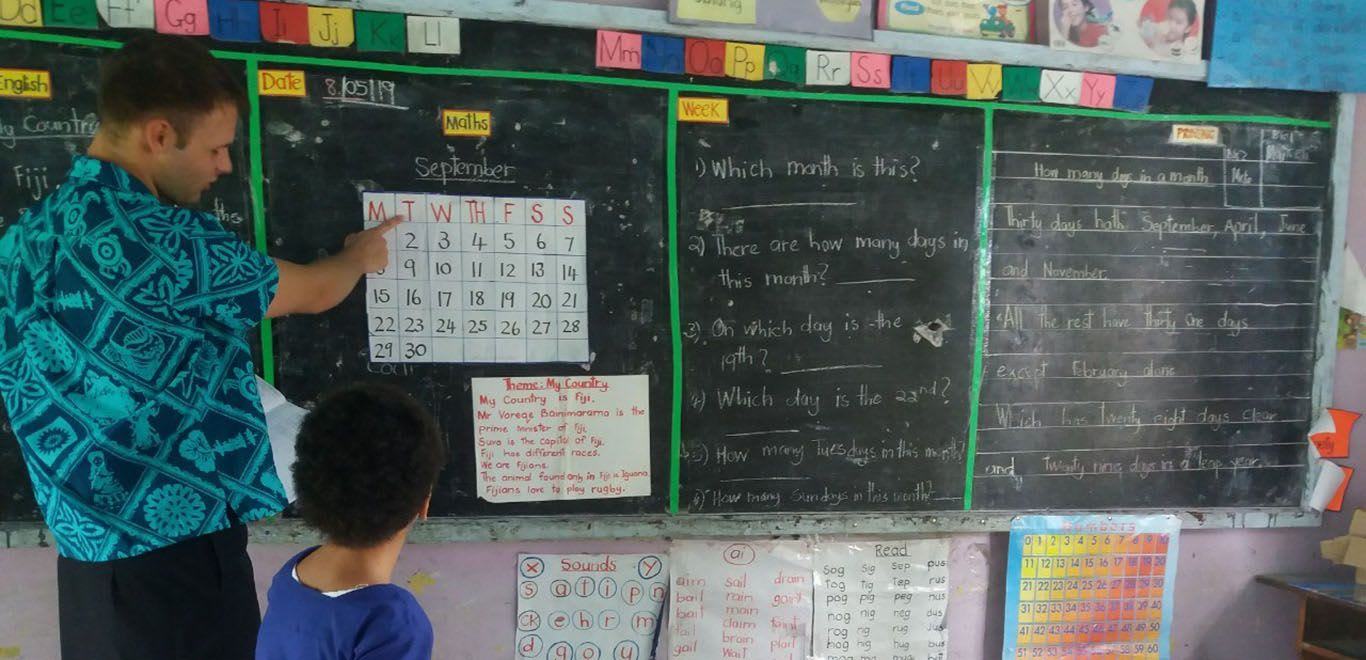 Dd Ee Hh Gg Hh Ii Jj Kk Ll
Mm Nn Oo Pp Qq Rr Ss Uu Xx Yy
English
Fiji
Date 8/05/19
Maths
September
M T W TH F S S
2 3 4 5 6 7
9 10 11 12 13 14
15 16 17 18 19 20 21
22 23 24 25 26 27 28
29 30
Theme: My Country
My Country is Fiji.
Mr Voreqe Bainimarama is the
prime minister of Fiji.
Suva is the capital of Fiji.
Fiji has different races.
We are Fijians.
The animal found only in Fiji is Iguana.
Fijians love to play rugby.
Week
1) Which month is this?
2) There are how many days in
this month?
3) On which day is the
19th?
4) Which day is the 22nd?
5) How many Tuesdays in this month?
6) How many Sundays in this month?
PRINTING
How many days in a month
Thirty days hath September, April, June
and November.
All the rest have thirty one days
except February alone
Which has twenty eight days clear
and Twenty nine days in a leap year.
X Sounds Y
s a t i p n
ck e h r m
d g o u
ai
aim sail drain
bail rain
bait main
claim
brain
gail wait
Read
sog sig sep pus
tog tig tep rus
pog pig peg nus
nog nig neg dus
rog rig rug
hog hig hug bus
Numbers
0 1 2 3 4 5 6 7 8 9 10
11 12 13 14 15 16 17 18 19 20
21 22 23 24 25 26 27 28 29 30
31 32 33 34 35 36 37 38 39 40
41 42 43 44 45 46 47 48 49 50
51 52 53 54 55 56 57 58 59 60